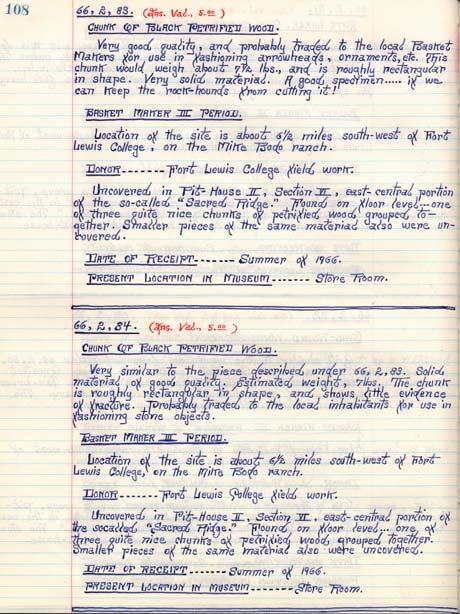 108
66, 2, 83. (Ins. Val., 5.00)
CHUNK OF BLACK PETRIFIED WOOD.
Very good quality, and probably traded to the local Basket
Makers for use in fashioning arrowheads, ornaments, etc. This
chunk would weigh about 7½ lbs., and is roughly rectangular
in shape. Very solid material. A good specimen..... if we
can keep the rock-hounds from cutting it!
BASKET MAKER III PERIOD.
Location of the site is about 6½ miles south-west of Fort
Lewis College, on the Mike Bodo ranch.
DONOR------- Fort Lewis College field work.
Uncovered in Pit-House II, Section VI, east-central portion
of the so-called "Sacred Ridge." Found on floor level...one
of three quite nice chunks of petrified wood, grouped to-
gether. Smaller pieces of the same material also were un-
covered.
DATE OF RECEIPT------ Summer of 1966.
PRESENT LOCATION IN MUSEUM------- Store Room.
66, 2, 84. (Ins. Val., 5.00)
CHUNK OF BLACK PETRIFIED WOOD.
Very similar to the piece described under 66, 2, 83. Solid
material, of good quality. Estimated weight, 7 lbs. The chunk
is roughly rectangular in shape, and shows little evidence
of fracture. Probably traded to the local inhabitants for use in
fashioning stone objects.
BASKET MAKER III PERIOD.
Location of the site is about 6½ miles south-west of Fort
Lewis College, on the Mike Bodo ranch.
DONOR------ Fort Lewis College field work.
Uncovered in Pit-House II, Section VI, east-central portion of
the socalled "Sacred Ridge." Found on floor level... one of
three quite nice chunks of petrified wood, grouped together.
Smaller pieces of the same material also were uncovered.
DATE OF RECEIPT------ Summer of 1966.
PRESENT LOCATION IN MUSEUM------ Store Room.